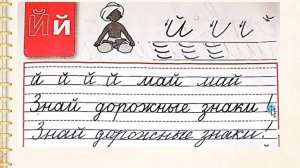 Йй Й
й й й й май май
Знай дорожные знаки!
Знай дорожные знаки!